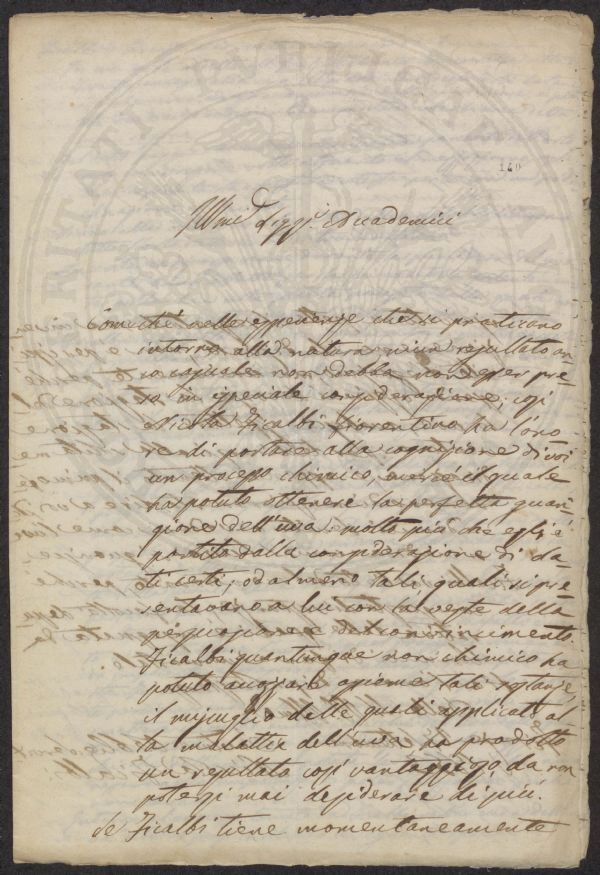 140
Ill.mi Sigg.i Accademici
Comechè nelle esperienze che si praticano
intorno alla natura niun resultato an
casuale non debba non esser pre-
so in speciale considerazione, così
Nicola Ficalbi Fiorentino ha l'ono-
re di portare alla cognizione di voi
un processo chimico, mercè il quale
ha potuto ottenere la perfetta guari-
gione dell'uva: molto più che egli è
partito dalla considerazione di da-
ti certi, od almeno tali quali si pre-
sentavano a lui con la veste della
persuasione e del convincimento.
Ficalbi quantunque non chimico ha
potuto accozzare assieme tali sostanze
il miscuglio delle quali applicato al-
la malattia dell'uva, ha prodotto
un resultato così vantaggioso, da non
potersi mai desiderare di più.
Se Ficalbi tiene momentaneamente